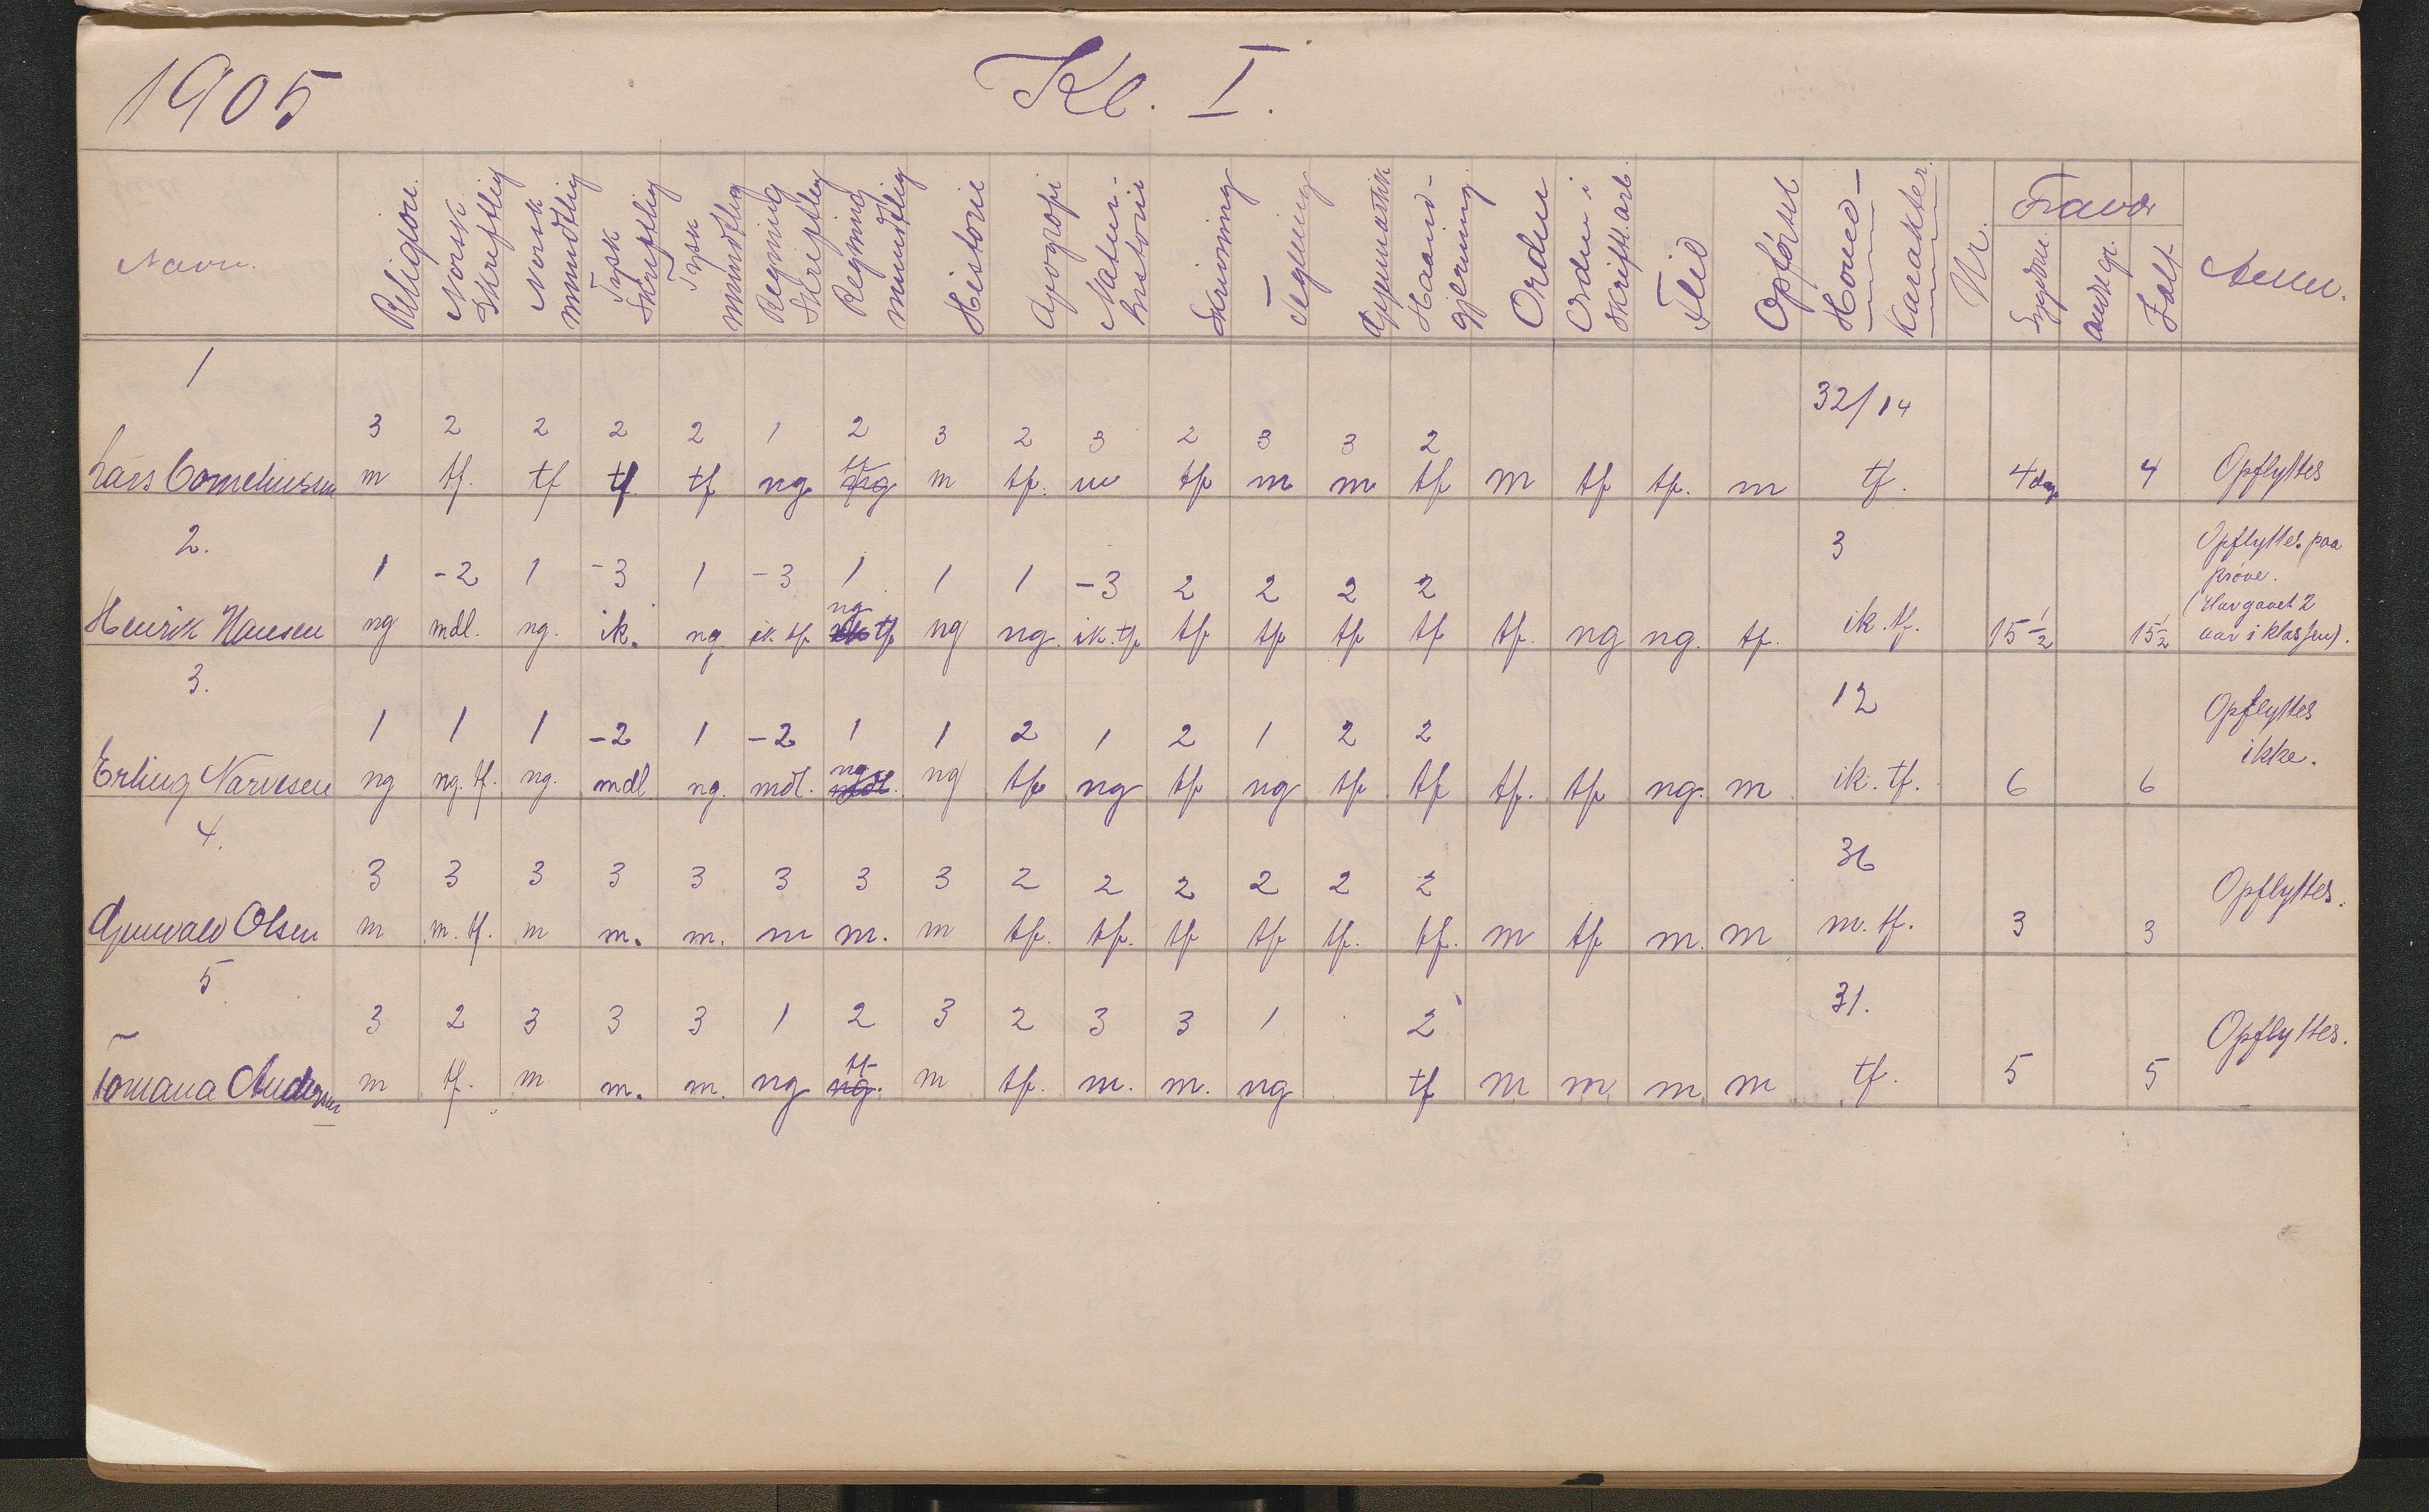 1905
Kl. I.
Navn. Religion. Norsk Skreftlig Norsk mundtlig Tysk Skreftlig Tysk mundtlig Regning Skreftleg Regning mundtlig Historie Geografi Natur-historie Skrivning Tegning Gymnastik Haand-gjerning. Orden Orden i skriftl. arb. Flid Opførsel Hoved-Karakter. Nr. Fravær Sygdom andre gr. Ialt Anm.
1
32/14
3 2 2 2 2 1 2 3 2 3 2 3 3 2
Lars Corneliussen m tf. tf tf tf ng tf m tf. m tf m m tf m tf tf. m tf. 4 dag 4 Opflyttes
2. 3 Opflyttes paa
1 -2 1 -3 1 -3 1 1 1 -3 2 2 2 2 prøve.
ng (Har gaaet 2
Henrik Hansen ng mdl. ng. ik. ng ik. tf tf ng ng. ik. tf tf tf tf tf tf. ng ng. tf. ik. tf. 15 1/2 15 1/2 aar i klassen).
3. 12 Opflyttes
1 1 1 -2 1 -2 1 1 2 1 2 1 2 2 ikke.
Erling Narvesen ng ng. tf. ng. mdl ng. mdl. ng mdl. ng tf ng tf ng tf tf tf. tf ng. m ik. tf. 6 6
4. 36
3 3 3 3 3 3 3 3 2 2 2 2 2 2 Opflyttes.
Olsen m m. tf. m m. m. m m. m tf. tf. tf tf tf. tf. m tf m. m m. tf. 3 3
5. 31.
3 2 3 3 3 1 2 3 2 3 3 1 2 Opflyttes.
Andersen m tf. m m. m. ng tf ng. m tf. m. m. ng tf m m m m tf. 5 5